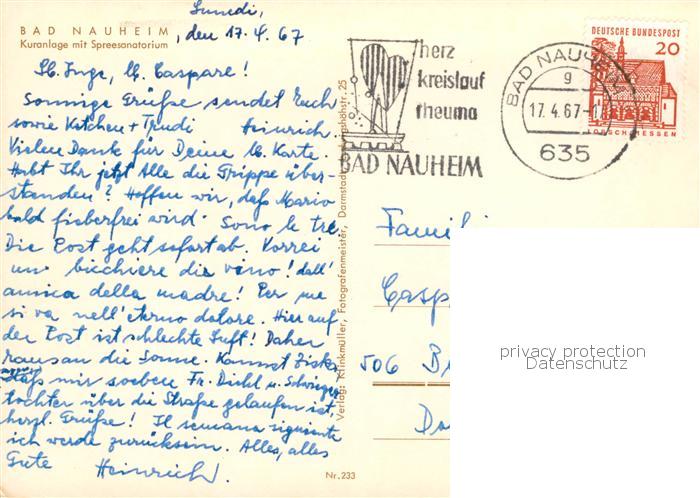 Lunedi,
BAD NAUHEIM
Kuranlage mit Spreesanatorium
, den 17.4.67
Lb. Inge, lb. Caspare!
Sonnige Grüße sendet Euch
sowie Kitchen + Trudi Heinrich.
Vielen Dank für Deine lb. Karte.
Habt Ihr jetzt Alle die Grippe über-
standen? Hoffen wir, daß Mario
bald fieberfrei wird. Sono le tre.
Die Post geht sofort ab. Vorrei
un bicchiere die vino! dall'
amica della madre! Per me
si va nell'eterno dolore. Hier auf
der Post ist schlechte Luft! Daher
raus an die Sonne. Kannst
daß mir soeben Fr. Diehl u. Schwieger
tochter über die Straße gelaufen ist,
herzl. Grüße! Il semana siguiente
ich werde zurück sein. Alles, alles
Gute Heinrich.
herz
kreislauf
rheuma
BAD NAUHEIM
BAD NAUHEIM
g
17.4.67-1
635
DEUTSCHE BUNDESPOST
20
LORSCH/HESSEN
Verlag: Klinkmüller, Fotografenmeister, Darmstadt 25
Famili
Casp
506 B
Da
Nr. 233
privacy protection
Datenschutz